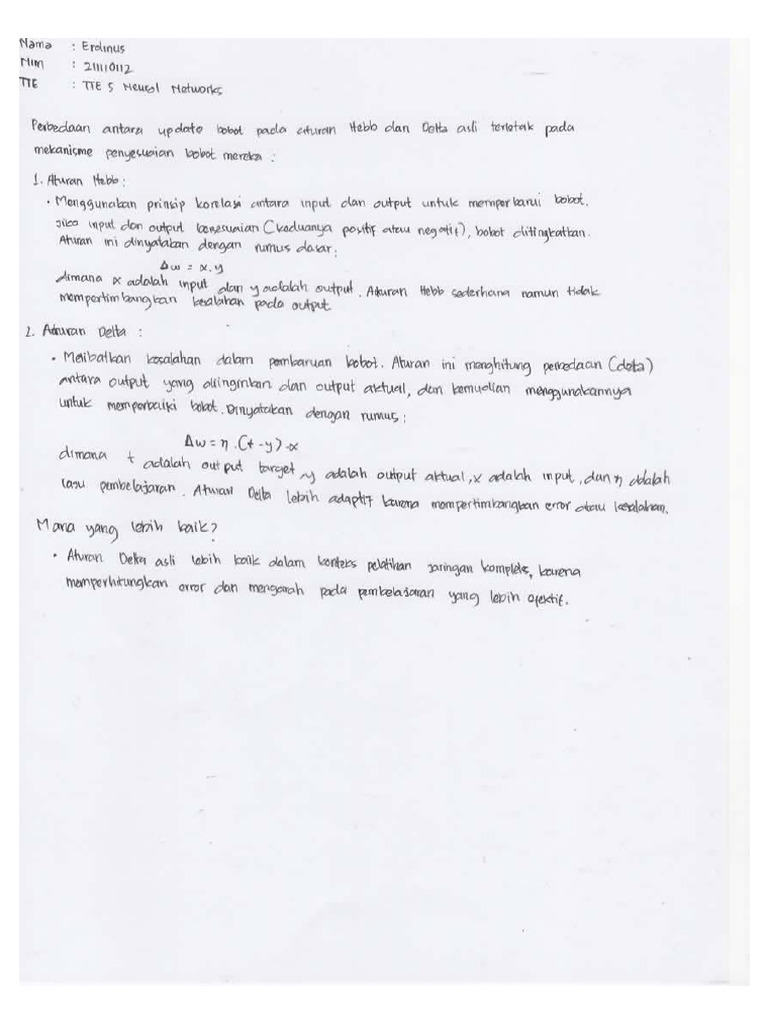 Nama : Erdinus
Mim : 211110112
TTE : TTE 5 Neural Networks
Perbedaan antara update bobot pada aturan Hebb dan Delta asli terletak pada
mekanisme penyesuaian bobot mereka :
1. Aturan Hebb :
• Menggunakan prinsip korelasi antara input dan output untuk memperbarui bobot.
Jika input dan output bersesuaian (keduanya positif atau negatif), bobot ditingkatkan.
Aturan ini dinyatakan dengan rumus dasar :
Δw = x.y
dimana x adalah input dan y adalah output. Aturan Hebb sederhana namun tidak
mempertimbangkan kesalahan pada output.
2. Aturan Delta :
• Melibatkan kesalahan dalam pembaruan bobot. Aturan ini menghitung perbedaan (delta)
antara output yang diinginkan dan output aktual, dan kemudian menggunakannya
untuk memperbaiki bobot. Dinyatakan dengan rumus :
Δw = η . (t - y) . x
dimana t adalah output target, y adalah output aktual, x adalah input, dan η adalah
laju pembelajaran. Aturan Delta lebih adaptif karena mempertimbangkan error atau kesalahan.
Mana yang lebih baik?
• Aturan Delta asli lebih baik dalam konteks pelatihan jaringan kompleks, karena
memperhitungkan error dan mengarah pada pembelajaran yang lebih efektif.